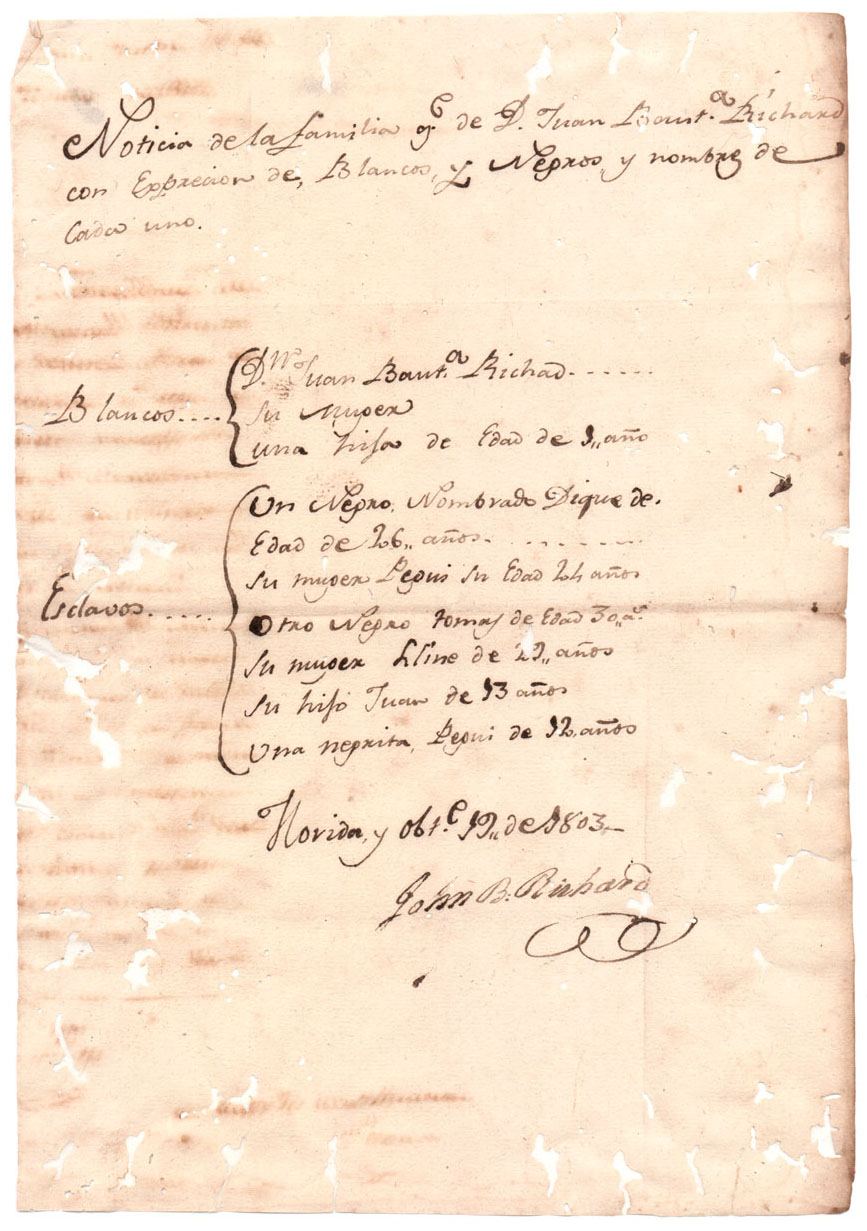 Noticia de la familia q.e de D. Juan Baut.a Richard
con Exprecion de, Blancos, y Negros, y nombre de
Cada uno.
Blancos.... D.n Juan Baut.a Richad.......
su Muger
una hija de Edad de 1,, año
Un Negro, Nombrado Dique de.
Edad de 26,, años. . . . . . . . .
su muger Pegui su Edad 24 años
Esclavos...... Otro Negro tomas de Edad 30,, a.s
su muger Lline de 29,, años
su hijo Juan de 13 años
Una negrita, Pegui de 12, años
Florida, y Obt.e 19,, de 1803,,
John B. Richard